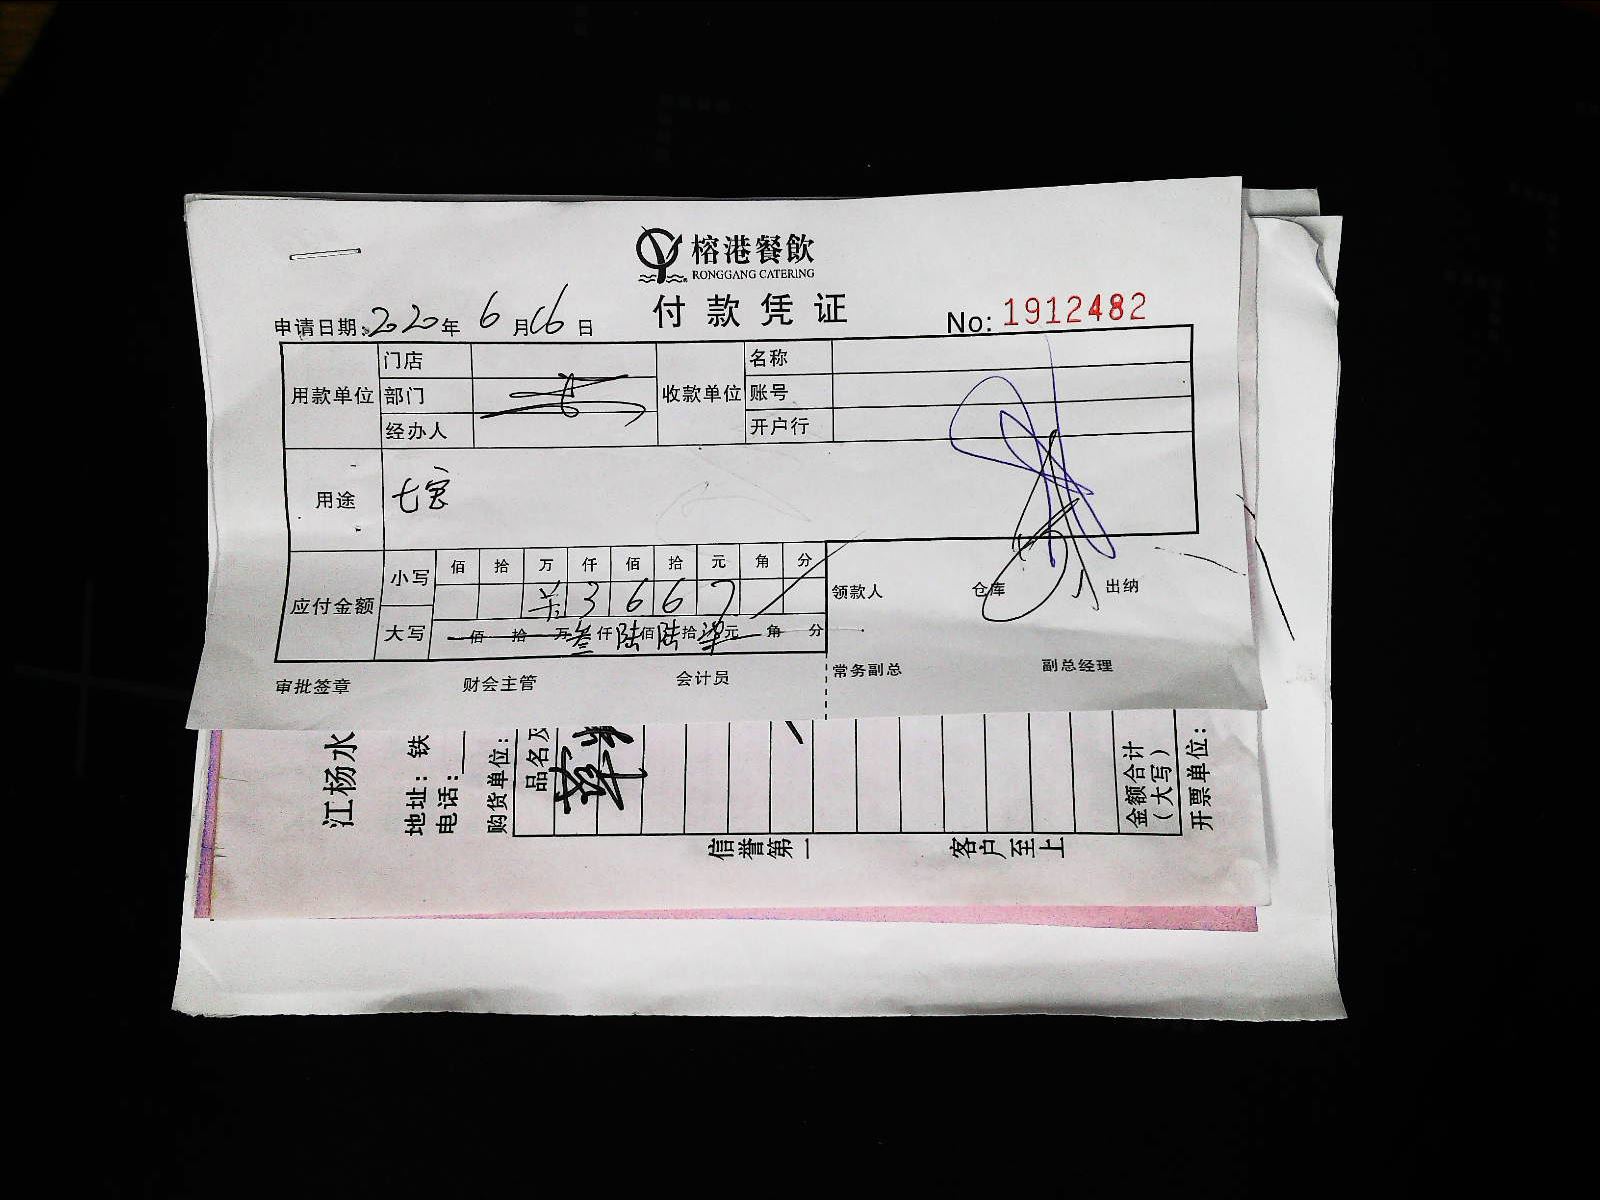 榕港餐飲
RONGGANG CATERING
付款凭证
申请日期: 2020年 6月16日
No: 1912482
用款单位 门店 收款单位 名称
部门 账号
经办人 开户行
用途 七宝
应付金额 小写 佰 拾 万 仟 佰 拾 元 角 分
3 6 6 7
大写 佰 拾 万 叁仟 陆佰 陆拾 元 角 分
领款人 仓库 出纳
审批签章 财会主管 会计员 常务副总 副总经理
江杨水
地址: 铁
电话:
购货单位:
品名及
金额合计
(大写)
开票单位:
信誉第一 客户至上